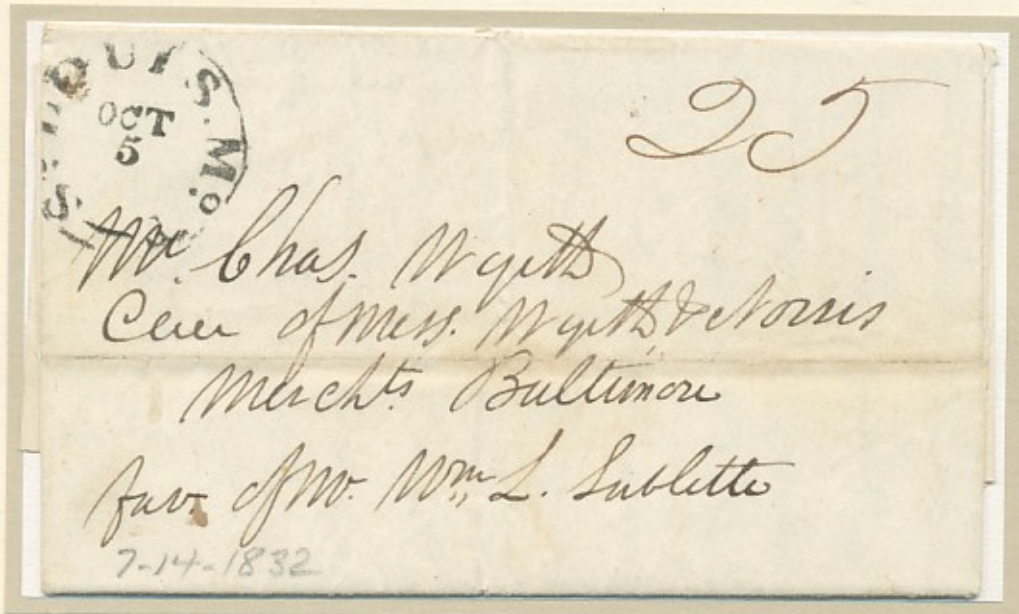 ST. LOUIS. Mo.
OCT
5
25
Mr. Chas. Wyeth
Care of Mess. Wyeth & Norris
Merchts Baltimore
fav. of Mr. Wm. L. Sublette
7-14-1832